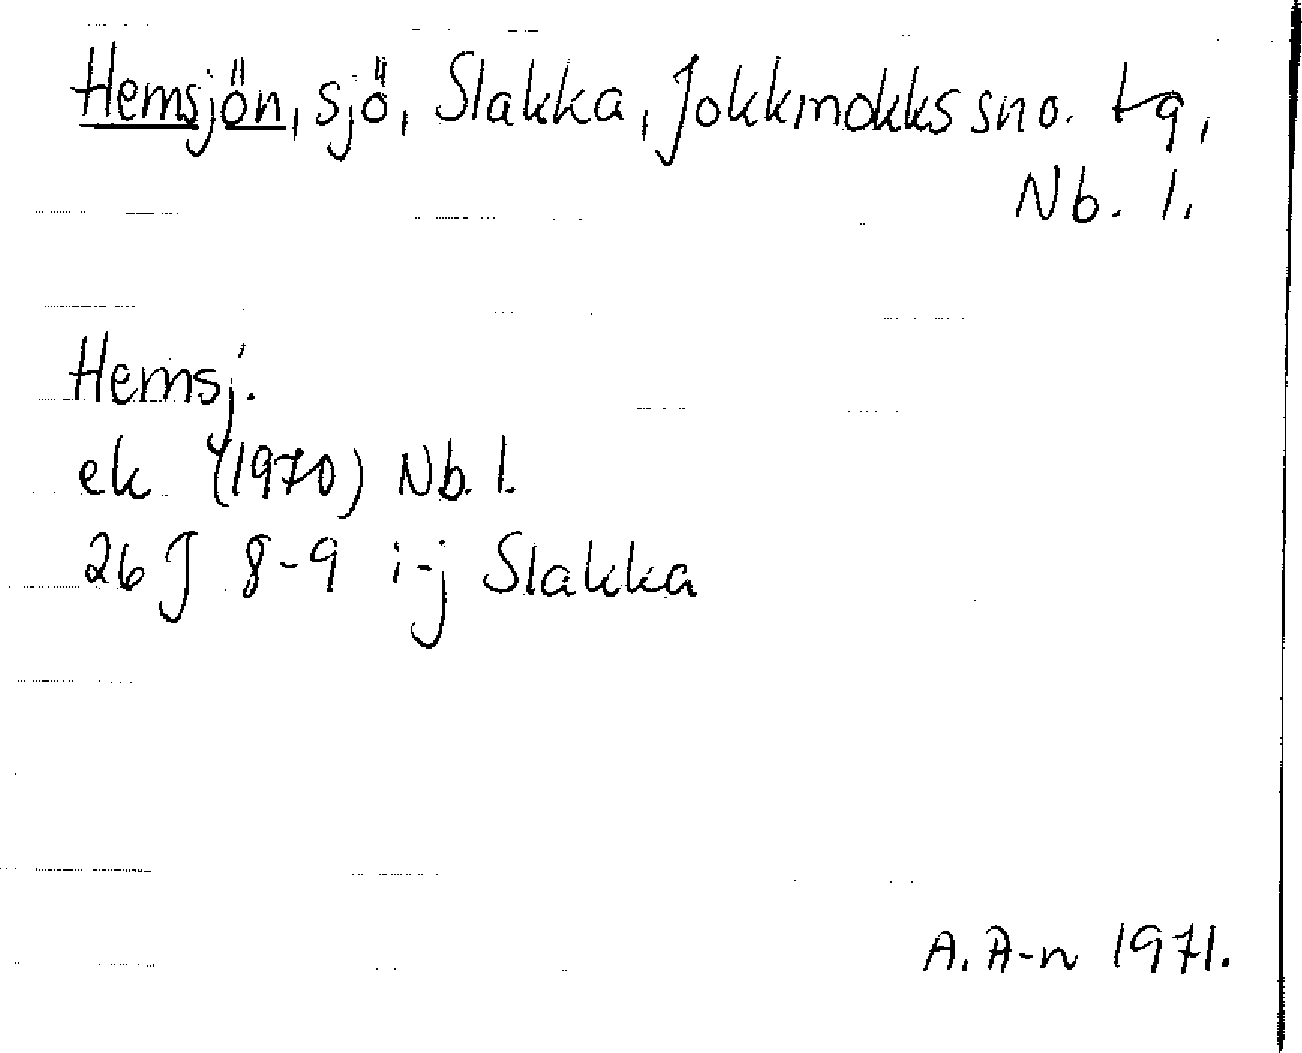 Hemsjön, sjö, Slakka, Jokkmokks sno. tg,
Nb. l.
Hemsj.
ek (1970) Nb. l.
26 J 8-9 i-j Slakka
A. A-n 1971.